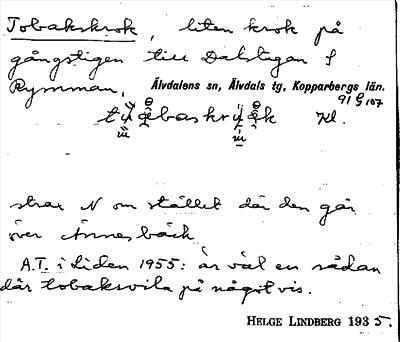 Tobakskrok, liten krok på
gångstigen till Dalstugan S
Rymman,
Älvdalens sn, Älvdals tg, Kopparbergs län.
91 G 107
Kl.
strax N om stället där den går
över Ännesbäck
A.T. i Liden 1955: är väl en sådan
där tobaksvila på något vis.
HELGE LINDBERG 1935.